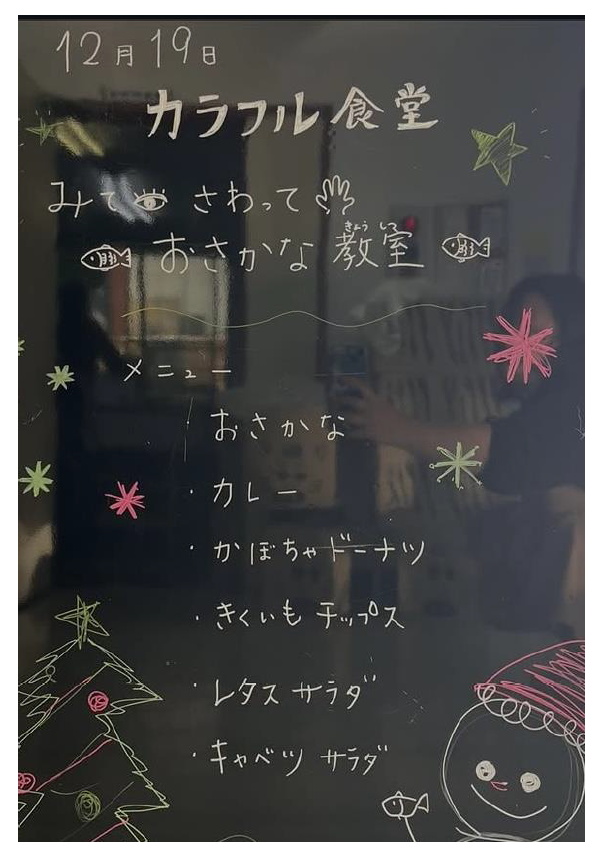 12月19日
カラフル食堂
みて さわって
おさかな教室
きょうしつ
メニュー
おさかな
・カレー
・かぼちゃドーナツ
・きくいもチップス
・レタスサラダ
・キャベツサラダ